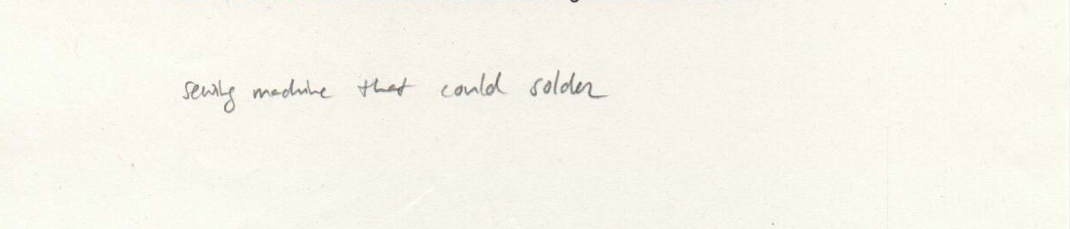 sewing machine that could solder